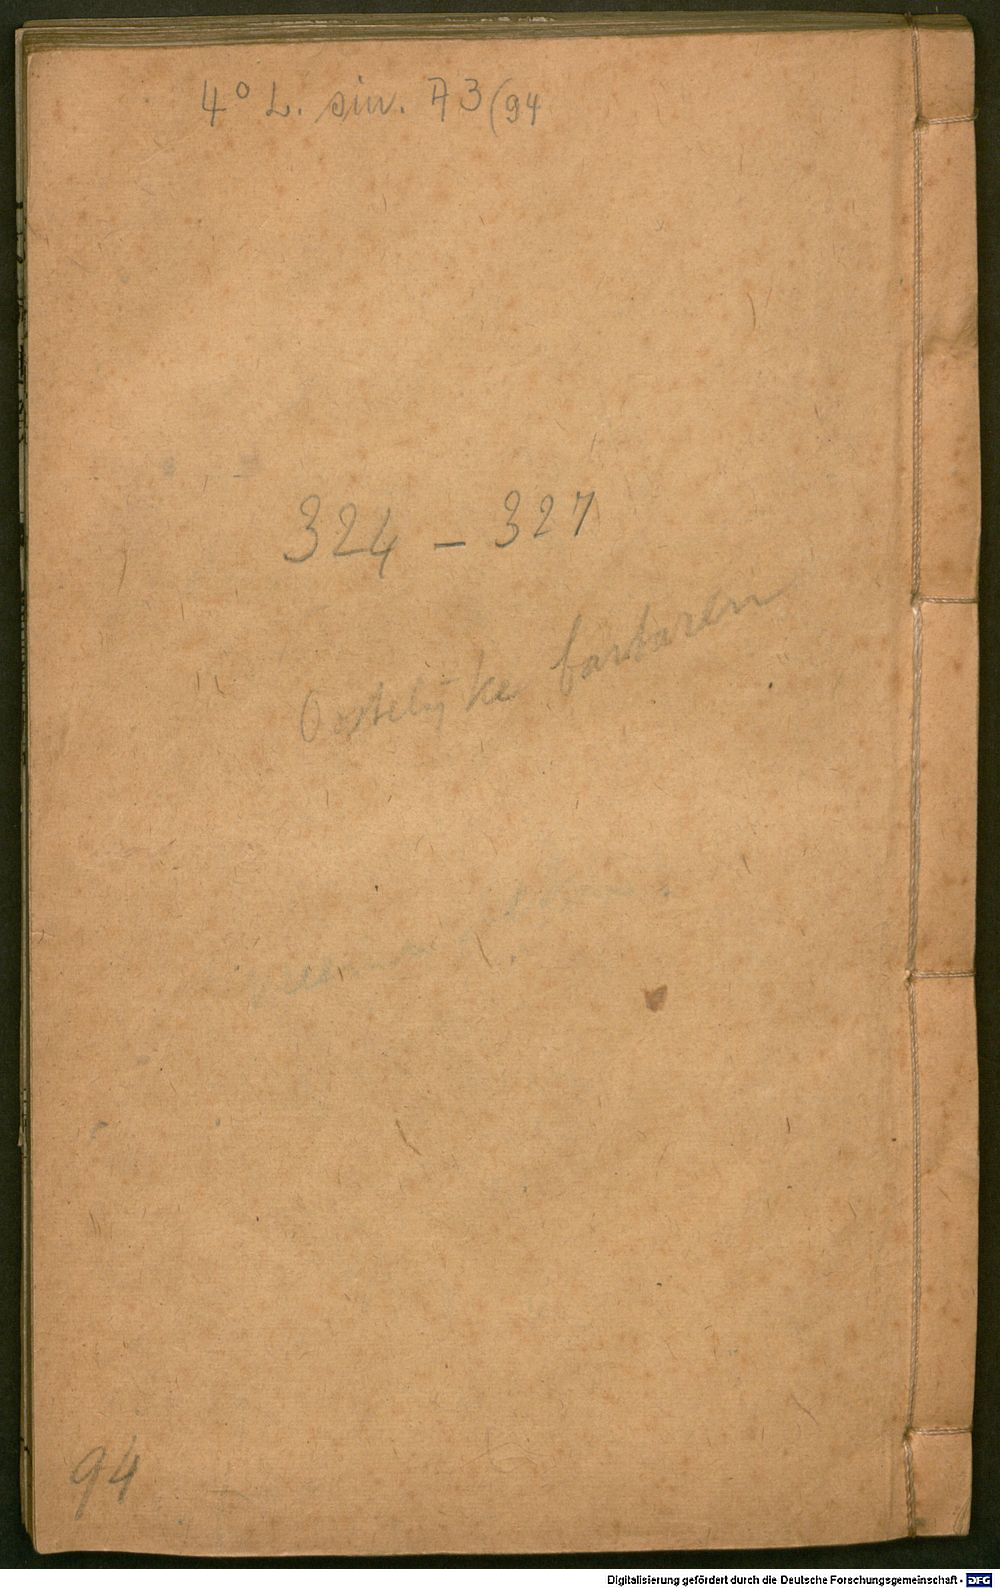 4° L. sin. A 3(94
324 – 327
Oostelijke barbaren
94
Digitalisierung gefördert durch die Deutsche Forschungsgemeinschaft - DFG